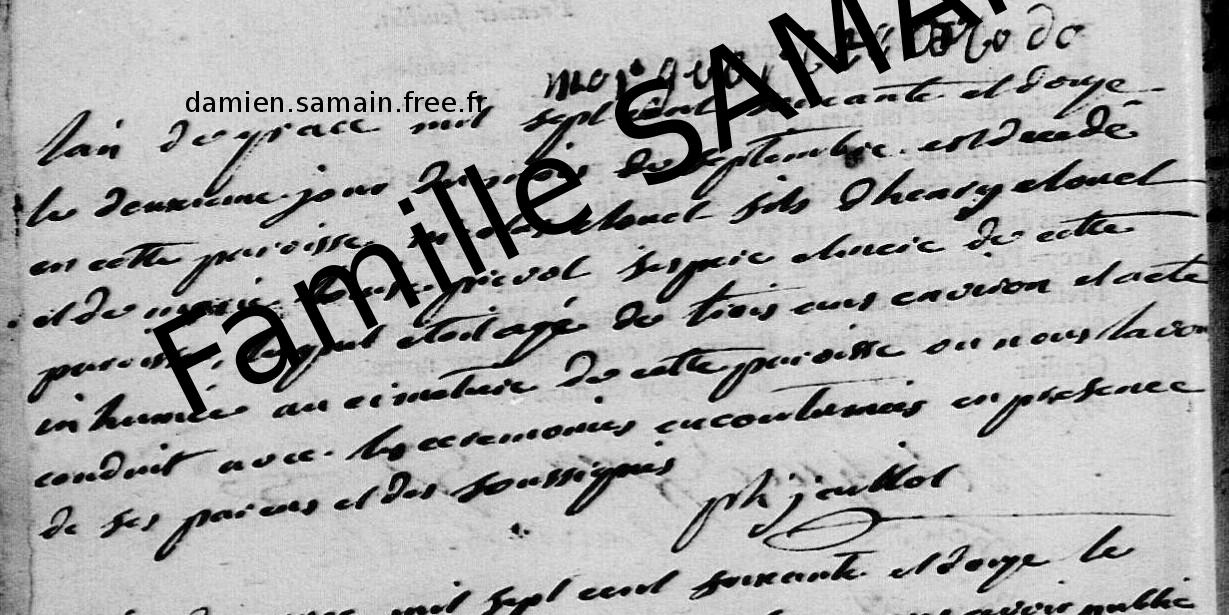 damien.samain.free.fr
Famille SAMAIN
lan de grace mil sept cent soixante et douze
le deuxieme jour du mois de septembre est decedé
en cette paroisse nicolas clouet fils d henry clouet
et de marie prevot ses pere et mere de cette
paroisse lequel etoit agé de trois ans environ et a ete
inhumé au cimetiere de cette paroisse ou nous lavons
conduit avec les ceremonies accoutumées en presence
de ses parens et des soussignés
ph jeullot
mil sept cent soixante et douze le
publié